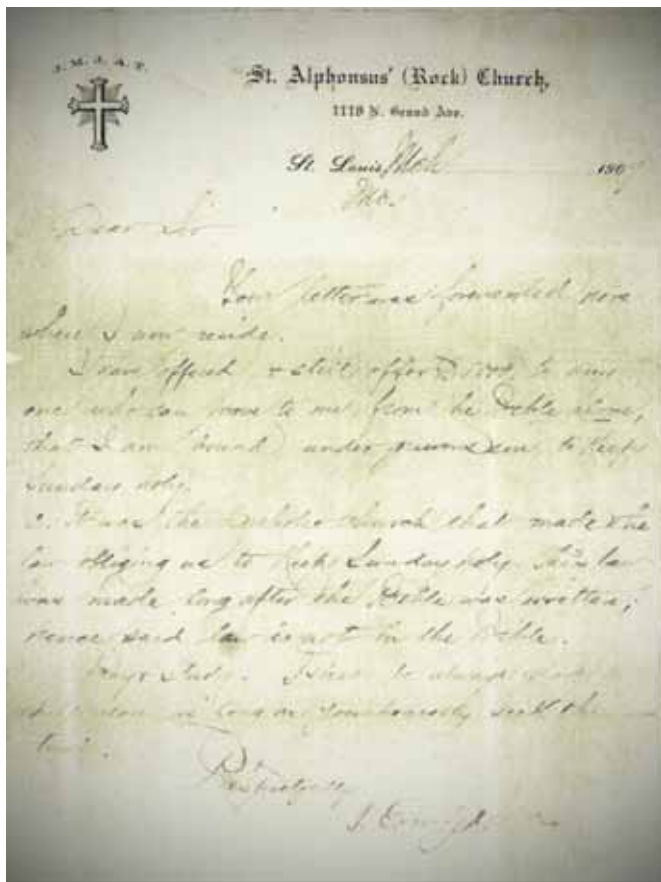 J. M. J. A. T.
St. Alphonsus' (Rock) Church,
1118 N. Grand Ave.
St. Louis, Mch 190
Mo.
Dear Sir
Your letter was forwarded here
where I now reside.
I have offered & still offer to any
one who can prove to me, from the Bible alone,
that I am bound under sin, to keep
Sunday holy.
It was the Catholic Church that made the
law obliging us to keep Sunday holy. This law
was made long after the Bible was written;
hence said law is not in the Bible.
to always
as long as honestly seek the
Respectfully